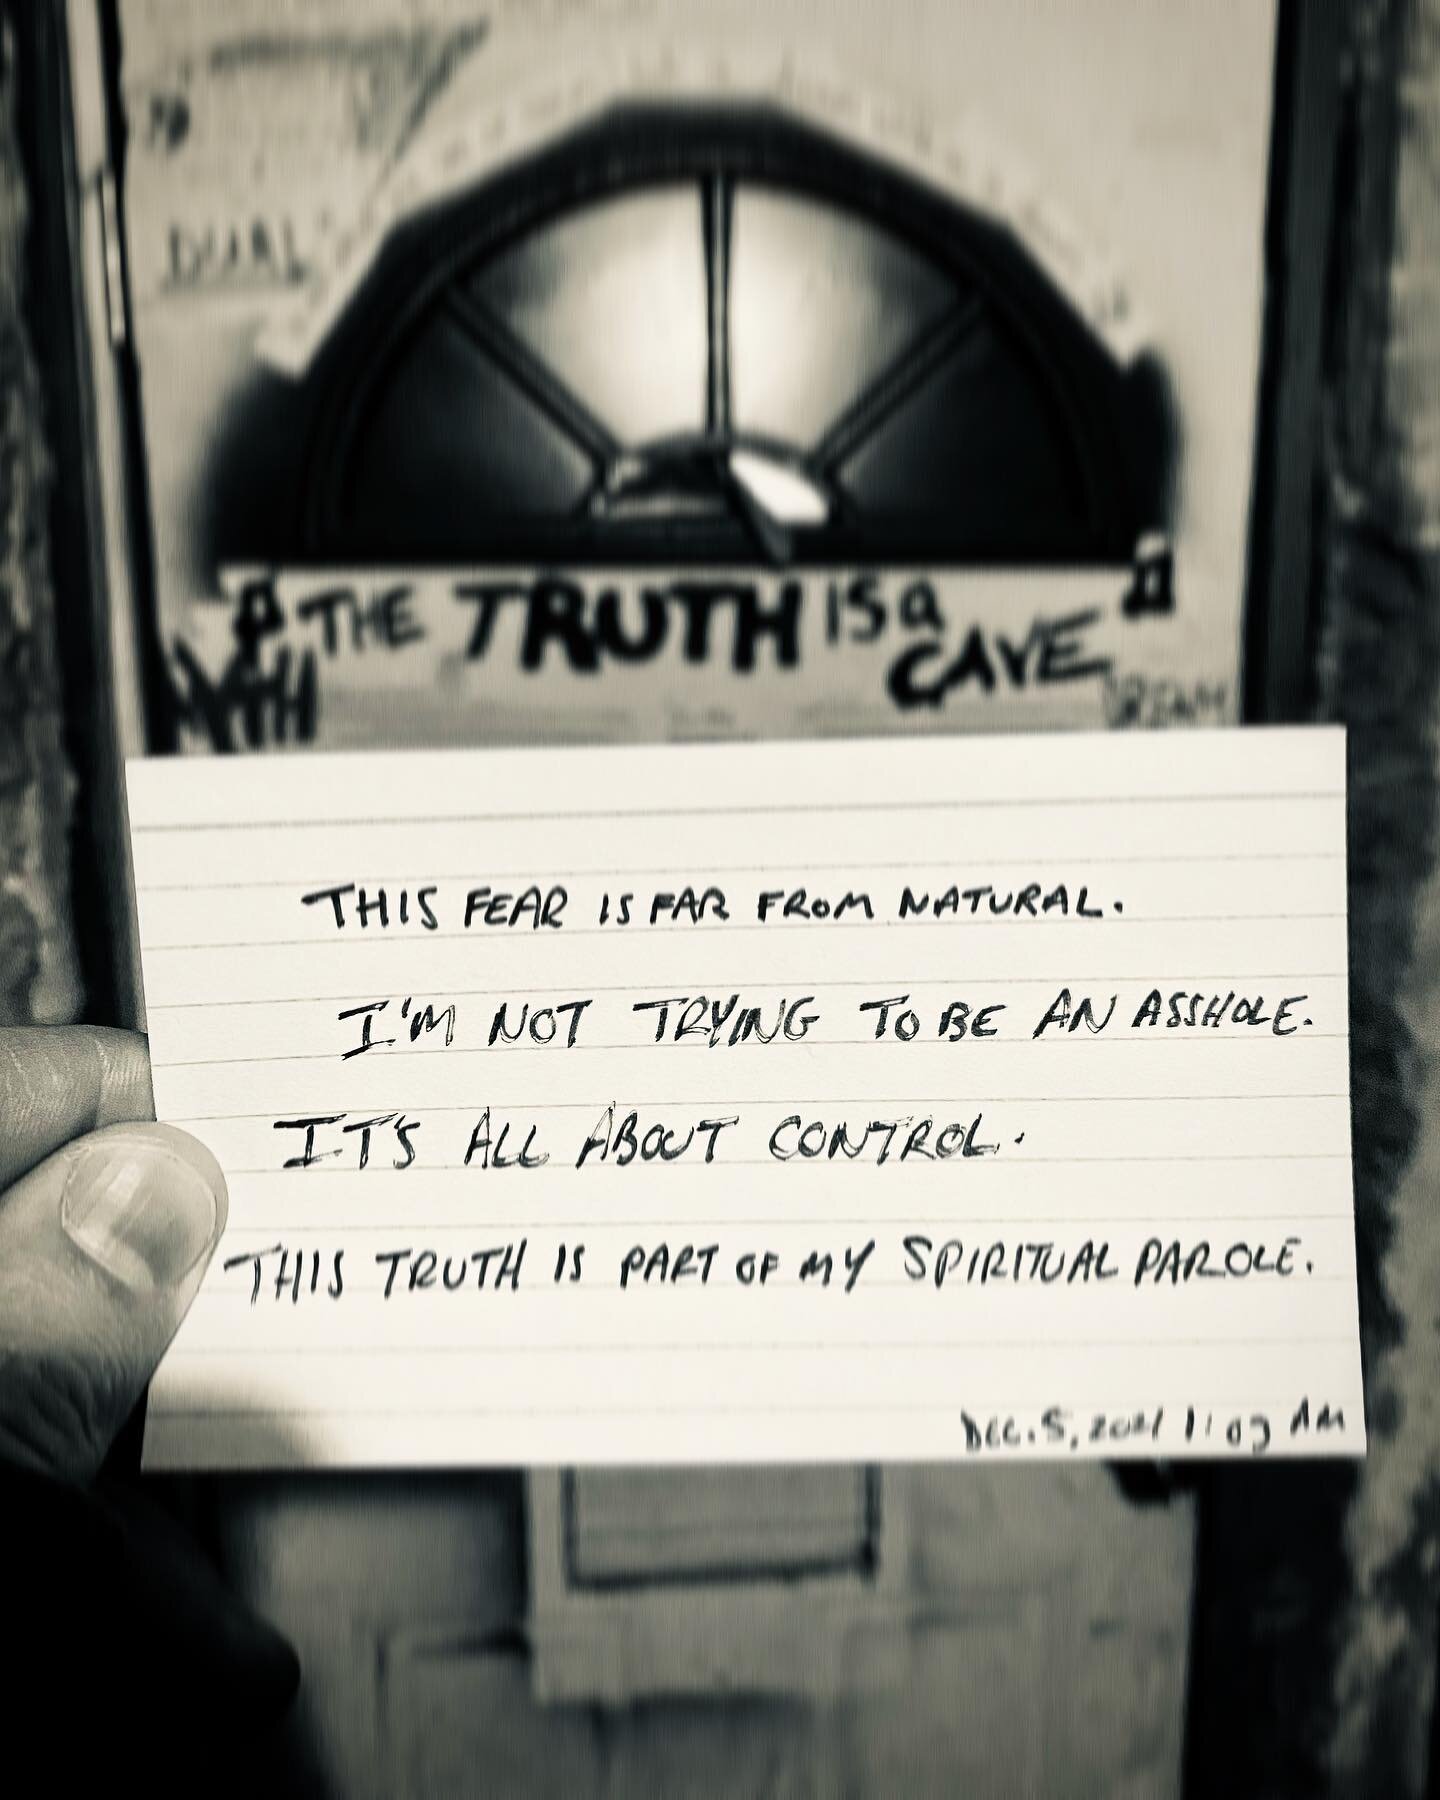 DUAL
THE TRUTH IS a CAVE
MYTH
DREAM
THIS FEAR IS FAR FROM NATURAL.
I'M NOT TRYING TO BE AN ASSHOLE.
IT'S ALL ABOUT CONTROL.
THIS TRUTH IS PART OF MY SPIRITUAL PAROLE.
DEC. 5, 2021 1:03 AM